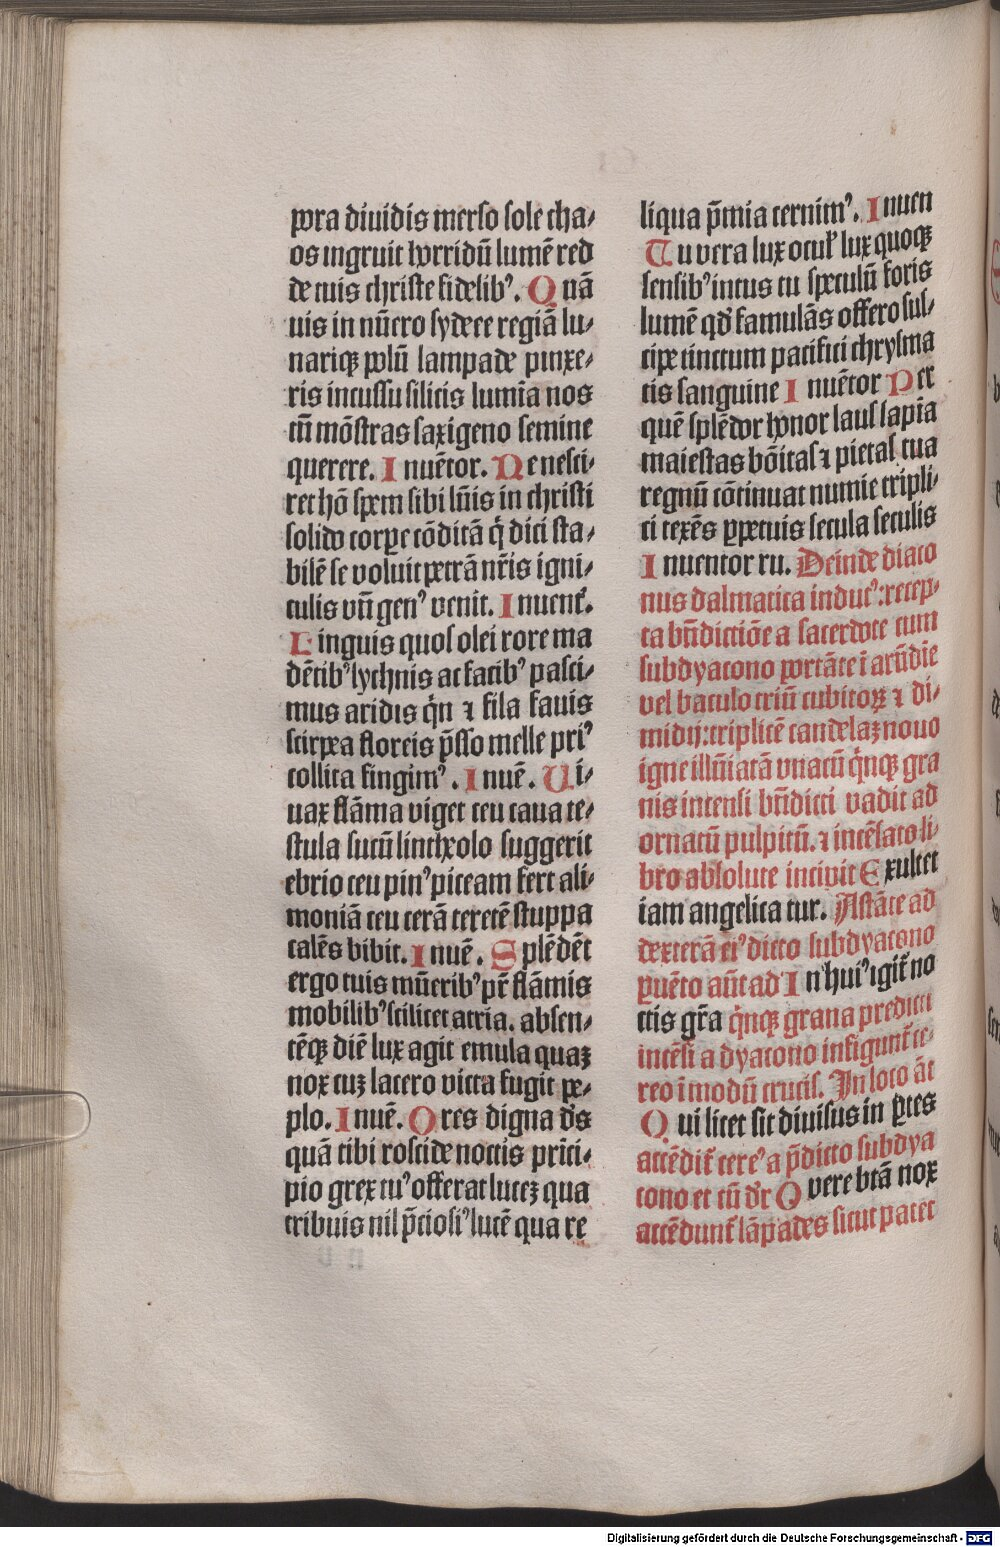 pora diuidis merso sole cha⸗
os ingruit horridū lumē red
de tuis christe fidelibꝰ. Quā
uis in nūero sydere regiā lu⸗
nariqꝫ polū lampade pinxe⸗
ris incussu silicis lumīa nos
tū mōstras saxigeno semine
querere. Inuētor. Ne nesci⸗
ret hō spem sibi lūis in christi
solido corpe cōditā q̇ dici sta⸗
bilē se voluit petrā nr̄is igni⸗
culis vn̄ genꝰ venit. Inuent̄.
Linguis quos olei rore ma
dētibꝰ lychnis ac facibꝰ pasci⸗
mus aridis q̇n ⁊ fila fauis
scirpea floreis p̄sso melle priꝰ
collita fingimꝰ. Inuē. Ui⸗
uax flāma viget ceu caua te⸗
stula sucū lintheolo suggerit
ebrio ceu pinꝰ piceam fert ali⸗
moniā ceu cerā teretē stuppa
calēs bibit. Inuē. Splēdēt
ergo tuis mūeribꝰ pr̄ flāmis
mobilibꝰ scilicet atria. absen⸗
tēqꝫ diē lux agit emula quaꝫ
nox cuꝫ lacero victa fugit pe⸗
plo. Inuē. O res digna d̄s
quā tibi roscide noctis prīci⸗
pio grex tuꝰ offerat luceꝫ qua
tribuis nil p̄ciosiꝰ lucē qua re
liqua p̄mia cernimꝰ. Inuen
Tu vera lux oculꝭ lux quoqꝫ
sensibꝰ intus tu speculū foris
lumē qd̄ famulās offero sus⸗
cipe tinctum pacifici chrysma
tis sanguine Inuētor Per
quē splēdor honor laus sapīa
maiestas bōitas ⁊ pietas tua
regnū cōtinuat numie tripli⸗
ci texēs ꝑpetuis secula seculis
Inuentor ru. Deinde diaco
nus dalmatica inducꝰ: recep⸗
ta bn̄dictiōe a sacerdote cum
subdyacono portāte ī arūdīe
vel baculo triū cubitoꝝ ⁊ di⸗
midij: triplicē candelaꝫ nouo
igne illūiatā vnacū q̇nqꝫ gra
nis incensi bn̄dicti vadit ad
ornatū pulpitū. ⁊ incēsato li⸗
bro absolute incipit Exultet
iam angelica tur. Astāte ad
dexterā eiꝰ dicto subdyacono
ꝑuēto aūt ad In huiꝰ igit̄ no
ctis gr̄a q̇nqꝫ grana predicti
incēsi a dyacono infigunt̄ ce⸗
reo ī modū crucis. In loco āt
Qui licet sit diuisus in ꝑtes
accēdit̄ cereꝰ a p̄dicto subdya
cono et cū dr̄ O vere btā nox
accēdunt̄ lāpades sicut patet
Digitalisierung gefördert durch die Deutsche Forschungsgemeinschaft - DFG